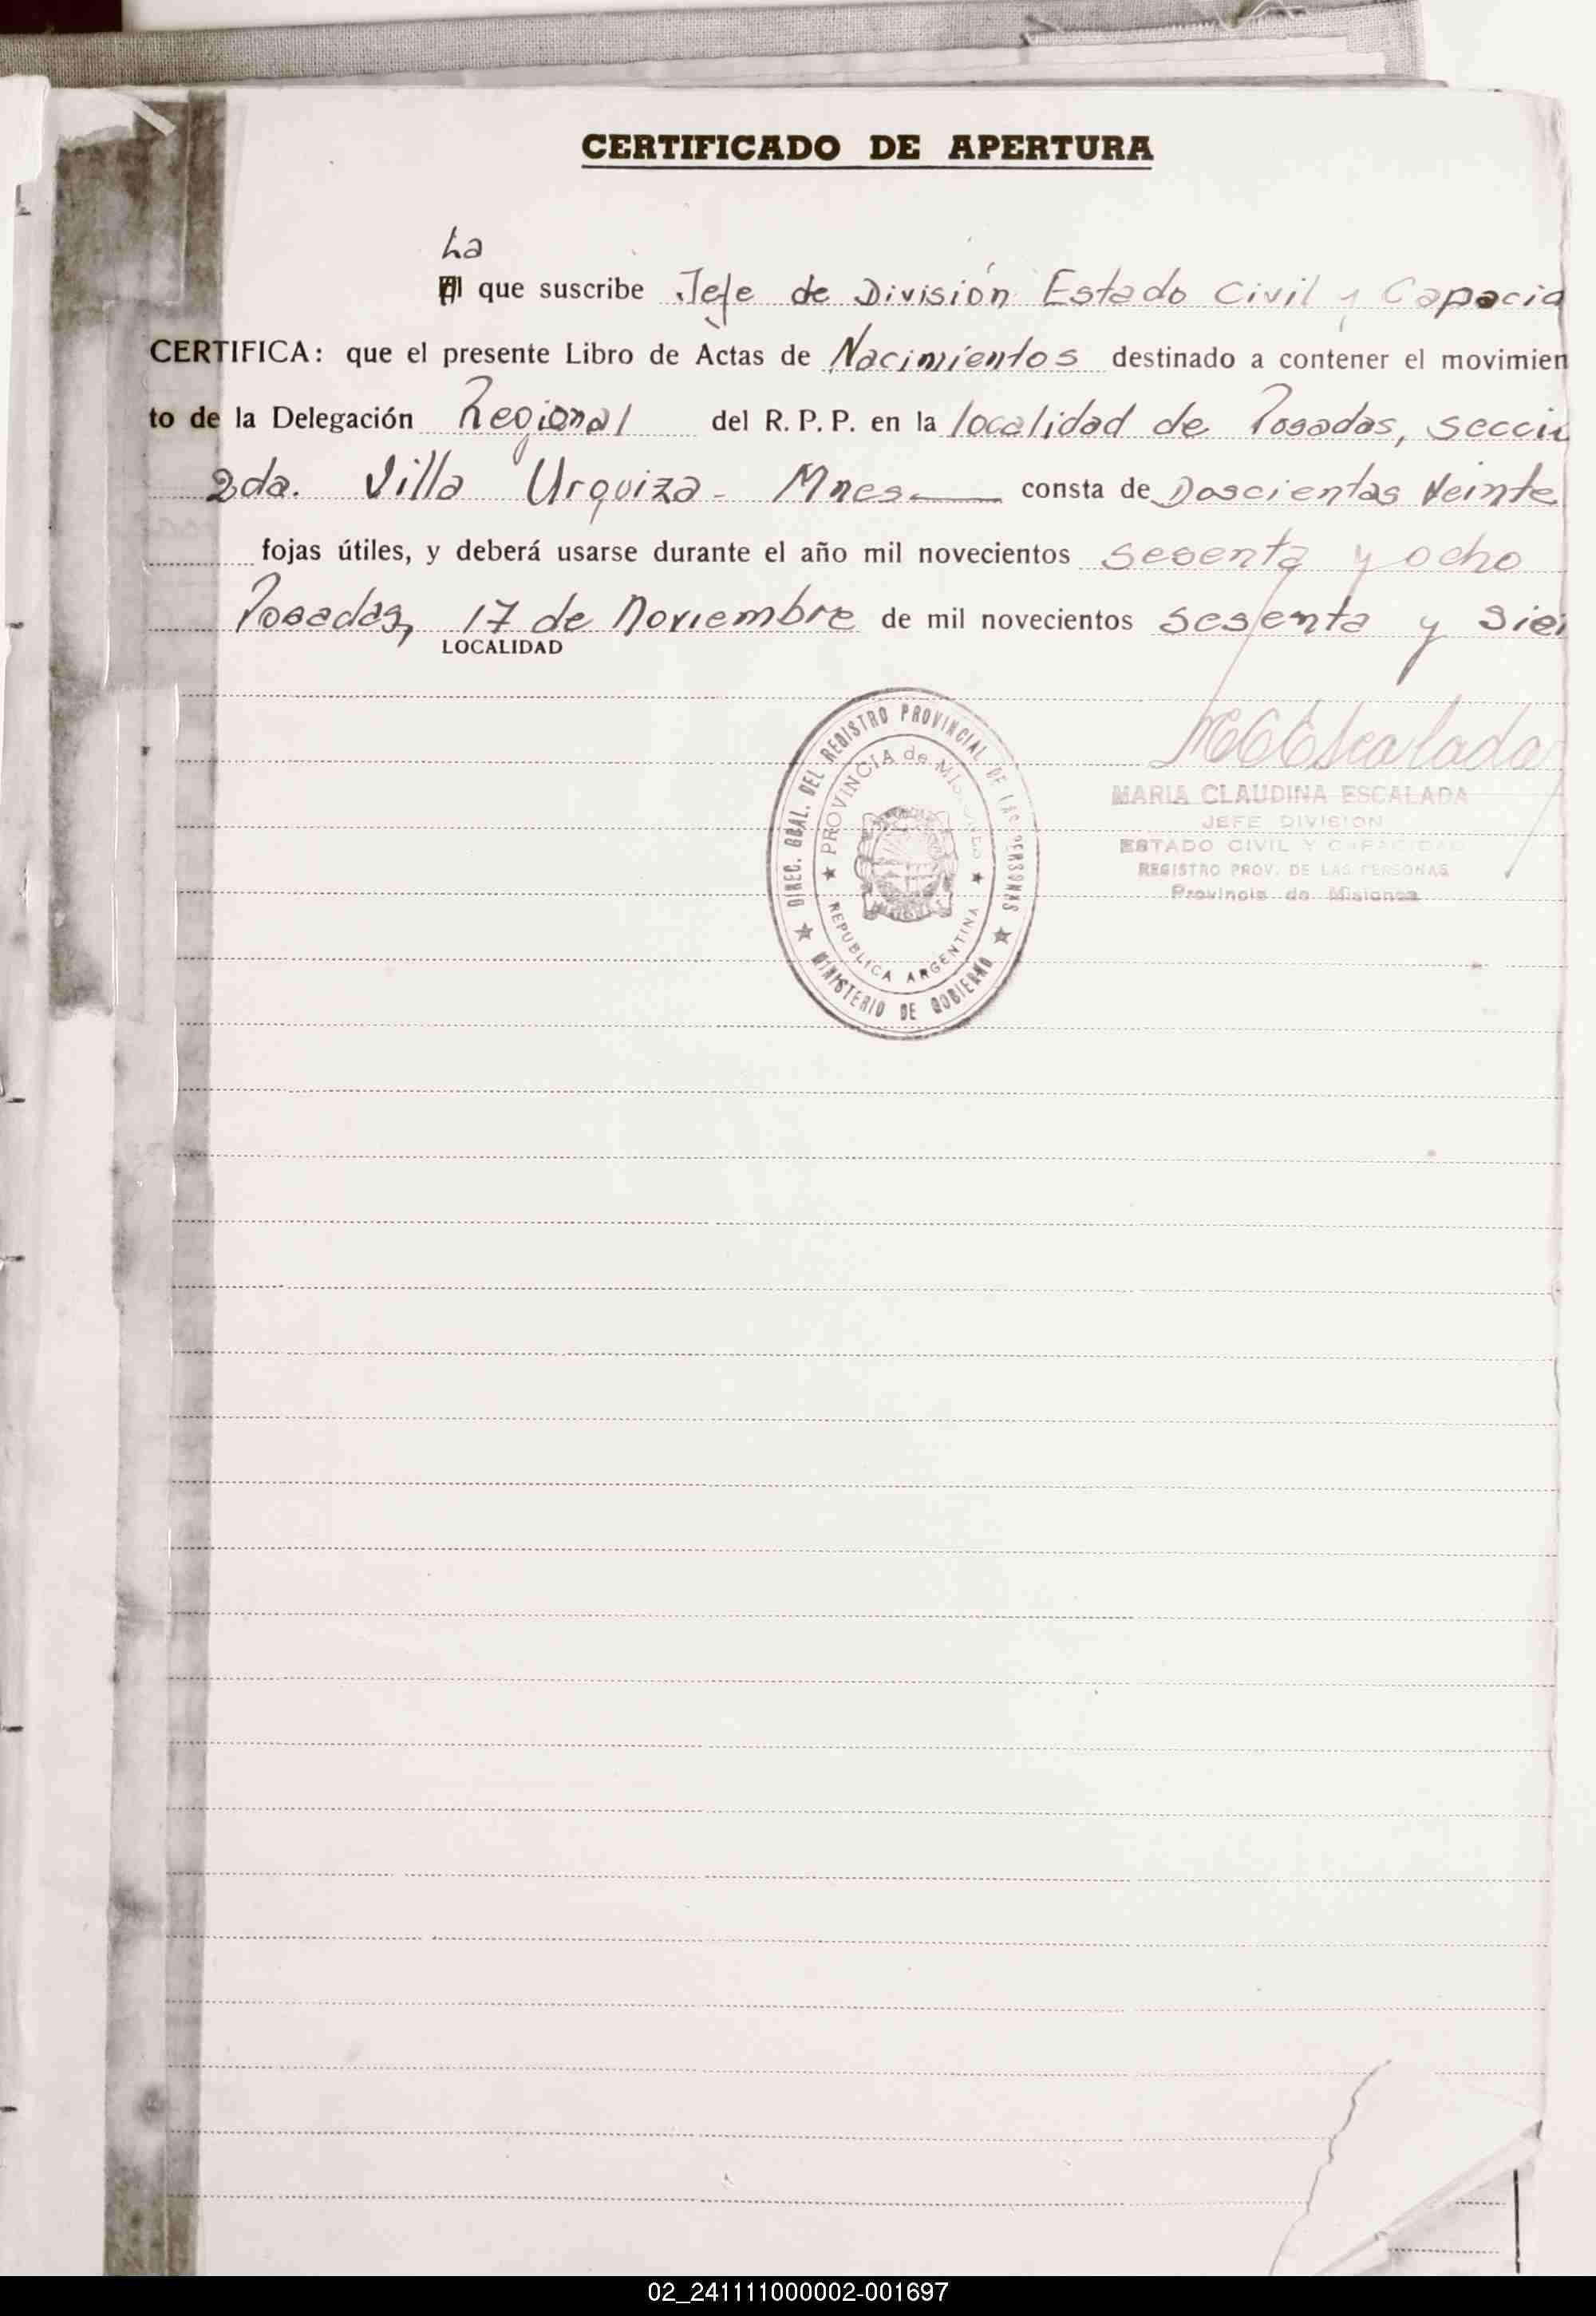 CERTIFICADO DE APERTURA
La
El que suscribe Jefe de División Estado Civil y Capacid
CERTIFICA: que el presente Libro de Actas de Nacimientos destinado a contener el movimien
to de la Delegación Regional del R. P. P. en la localidad de Posadas, secció
2da. Villa Urquiza - Mnes. consta de Doscientas Veinte
fojas útiles, y deberá usarse durante el año mil novecientos sesenta y ocho
Posadas, 17 de Noviembre de mil novecientos sesenta y Sie
LOCALIDAD
DIREC. GRAL. DEL REGISTRO PROVINCIAL DE LAS PERSONAS
PROVINCIA de MISIONES
REPUBLICA ARGENTINA
MINISTERIO DE GOBIERNO
MCEscalada
MARIA CLAUDINA ESCALADA
JEFE DIVISION
ESTADO CIVIL Y CAPACIDAD
REGISTRO PROV. DE LAS PERSONAS
Provincia de Misiones
02_241111000002-001697